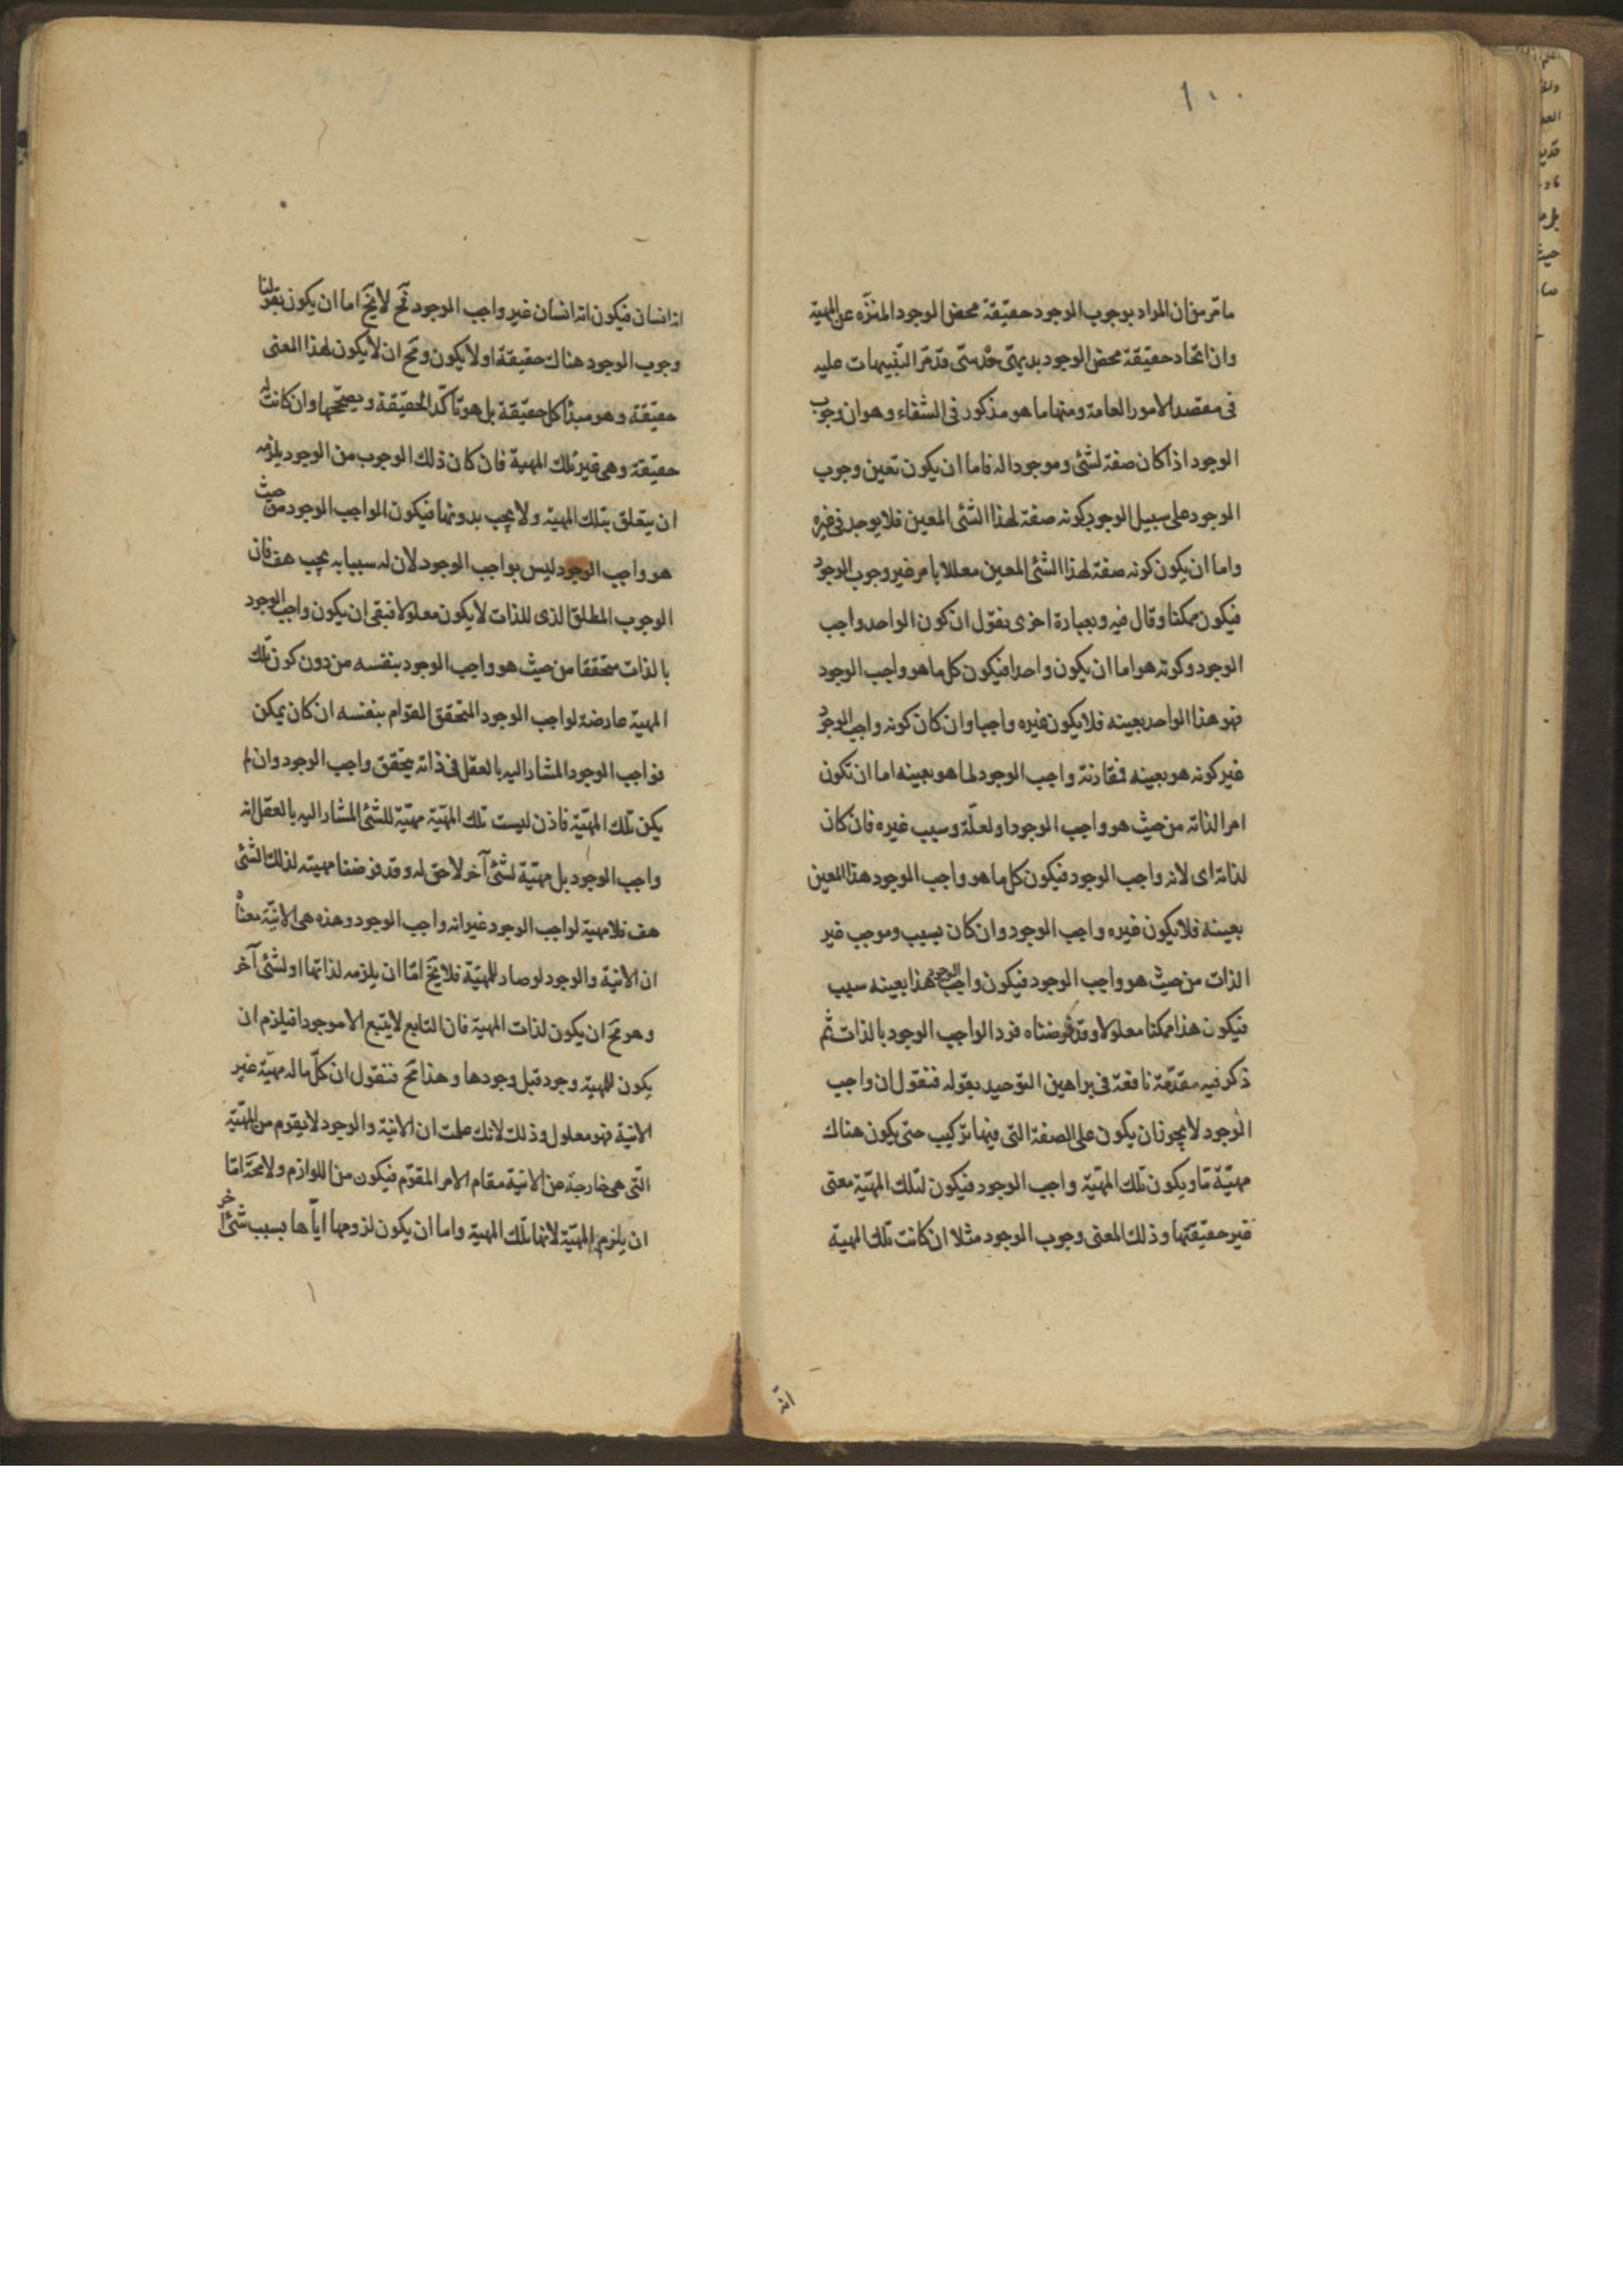 ١٠٠
ما مّر من ان المراد بوجوب الوجود حقيقة محض الوجود المنزّه عن المهية
وان اتحاد حقيقة محض الوجود بديهى حدسى قد مّر التنبيهات عليه
فى مقصد الامور العامة ومنها ما هو مذكور فى الشفاء وهو ان وجوب
الوجود اذا كان صفة لشئ وموجودا له فاما ان يكون تعين وجوب
الوجود على سبيل الوجود كونه صفة لهذا الشئ المعين فلا يوجد فى غيره
واما ان يكون كونه صفة لهذا الشئ المعين معللا بامر غير وجوب الوجود
فيكون ممكنا وقال فيه وبعبارة اخرى نقول ان كون الواحد واجب
الوجود وكونه هو اما ان يكون واحدا فيكون كل ما هو واجب الوجود
فهو هذا الواحد بعينه فلا يكون غيره واجبا وان كان كونه واجب الوجود
غير كونه هو بعينه فمقارنة واجب الوجود لما هو بعينه اما ان تكون
امرا لذاته من حيث هو واجب الوجود او لعلّة وسبب غيره فان كان
لذاته اى لانه واجب الوجود فيكون كل ما هو واجب الوجود هذا المعين
بعينه فلا يكون غيره واجب الوجود وان كان بسبب وموجب غير
الذات من حيث هو واجب الوجود فيكون واجب الوجود هذا بعينه سبب
فيكون هذا ممكنا معلولا وقد فرضناه فرد الواجب الوجود بالذات ثم
ذكر فيه مقدّمة نافعة فى براهين التوحيد بقوله فنقول ان واجب
الوجود لا يجوز ان يكون على الصفة التى فيها تركيب حتى يكون هناك
مهيّة مّا ويكون تلك المهيّة واجب الوجود فيكون لتلك المهيّة معنى
غير حقيقتها وذلك المعنى وجوب الوجود مثلا ان كانت تلك المهية
انه
انه انسان فيكون انه انسان غير واجب الوجود فح لا يخ اما ان يكون بقولنا
وجوب الوجود هناك حقيقة او لا يكون ومح ان لا يكون لهذا المعنى
حقيقة وهو مبدأ كل حقيقة بل هو تأكّد الحقيقة ويصحّحها وان كانت له
حقيقة وهى غير تلك المهية فان كان ذلك الوجوب من الوجود يلزمه
ان يتعلق بتلك المهية ولا يجب بدونها فيكون الواجب الوجود من حيث
هو واجب الوجود ليس بواجب الوجود لان له سببا به يجب هف فان
الوجوب المطلق الذى للذات لا يكون معلولا فبقى ان يكون واجب الوجود
بالذات متحققا من حيث هو واجب الوجود بنفسه من دون كون تلك
المهية عارضة لواجب الوجود المتحقق القوام بنفسه ان كان يمكن
فواجب الوجود المشار اليه بالعقل فى ذاته يتحقق واجب الوجود وان لم
يكن تلك المهيّة فاذن ليست تلك المهيّة مهيّة للشئ المشار اليه بالعقل انه
واجب الوجود بل مهيّة لشئ آخر لاحق له وقد فرضنا مهيته لذلك الشئ
هف فلا مهية لواجب الوجود غير انه واجب الوجود وهذه هى الانيّة معناه
ان الانية والوجود لو صار للمهيّة فلا يخ امّا ان يلزمه لذاتها او لشئ آخر
وهو مح ان يكون لذات المهية فان التابع لا يتبع الا موجودا فيلزم ان
يكون للمهية وجود قبل وجودها وهذا مح فنقول ان كلّ ما له مهيّة غير
الانيّة فهو معلول وذلك لانك علمت ان الانية والوجود لا يقوم من المهيّة
التى هى خارجة عن الانيّة مقام الامر المقوّم فيكون من اللوازم ولا يخ امّا
ان يلزم المهيّة لانها تلك المهية واما ان يكون لزومها ايّاها بسبب شئ آخر